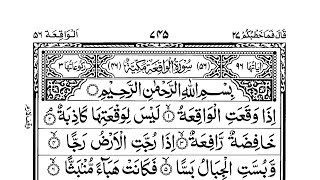 قَالَ فَمَا خَطْبُكُمْ ٢٧ ٧٤٥ اَلْوَاقِعَة ٥٦
اٰيَاتُهَا ٩٦ (٥٦) سُوْرَةُ الْوَاقِعَةِ مَكِّيَّةٌ (٤٦) رُكُوْعَاتُهَا ٣
بِسْمِ اللّٰهِ الرَّحْمٰنِ الرَّحِيْمِ
اِذَا وَقَعَتِ الْوَاقِعَةُ ۝١ لَيْسَ لِوَقْعَتِهَا كَاذِبَةٌ ۝٢
خَافِضَةٌ رَّافِعَةٌ ۝٣ اِذَا رُجَّتِ الْاَرْضُ رَجًّا ۝٤
وَّبُسَّتِ الْجِبَالُ بَسًّا ۝٥ فَكَانَتْ هَبَآءً مُّنْۢبَثًّا ۝٦